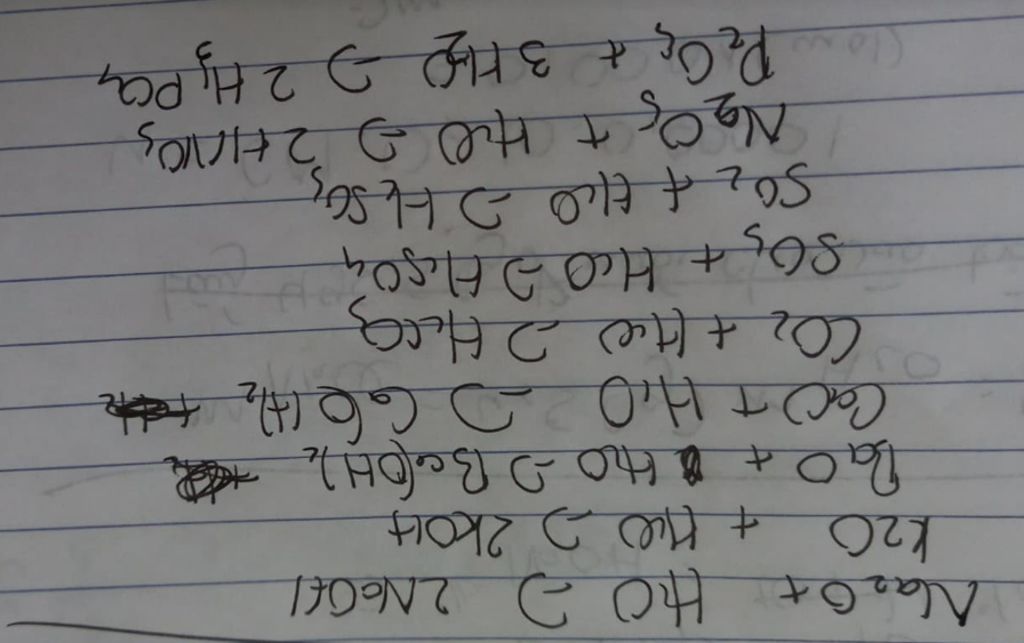 Na₂O + H₂O → 2NaOH
K2O + H₂O → 2KOH
BaO + H₂O → Ba(OH)₂
CaO + H₂O → Ca(OH)₂
CO₂ + H₂O → H₂CO₃
SO₃ + H₂O → H₂SO₄
SO₂ + H₂O → H₂SO₃
N₂O₅ + H₂O → 2HNO₃
P₂O₅ + 3H₂O → 2H₃PO₄